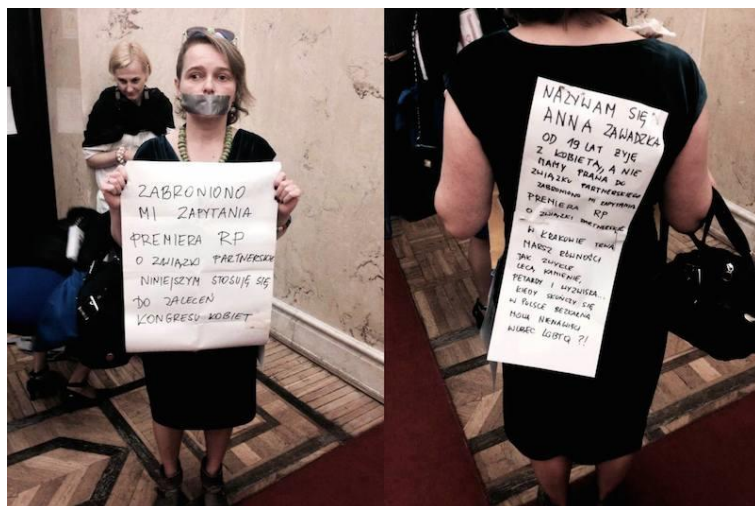 ZABRONIONO
MI ZAPYTANIA
PREMIERA RP
O ZWIĄZKI PARTNERSKIE
NINIEJSZYM STOSUJĘ SIĘ
DO ZALECEŃ
KONGRESU KOBIET
NAZYWAM SIĘ
ANNA ZAWADZKA
OD 19 LAT ŻYJĘ
Z KOBIETĄ, A NIE
MAMY PRAWA DO
ZWIĄZKU PARTNERSKIEGO
ZABRONIONO MI ZAPYTANIA
PREMIERA RP
O ZWIĄZKI PARTNERSKIE
W KRAKOWIE
MARSZ RÓWNOŚCI
JAK ZWYKLE
LECĄ KAMIENIE,
PETARDY I WYZWISKA...
KIEDY SKOŃCZY SIĘ
W POLSCE BEZKARNA
MOWA NIENAWIŚCI
WOBEC LGBTQ ?!